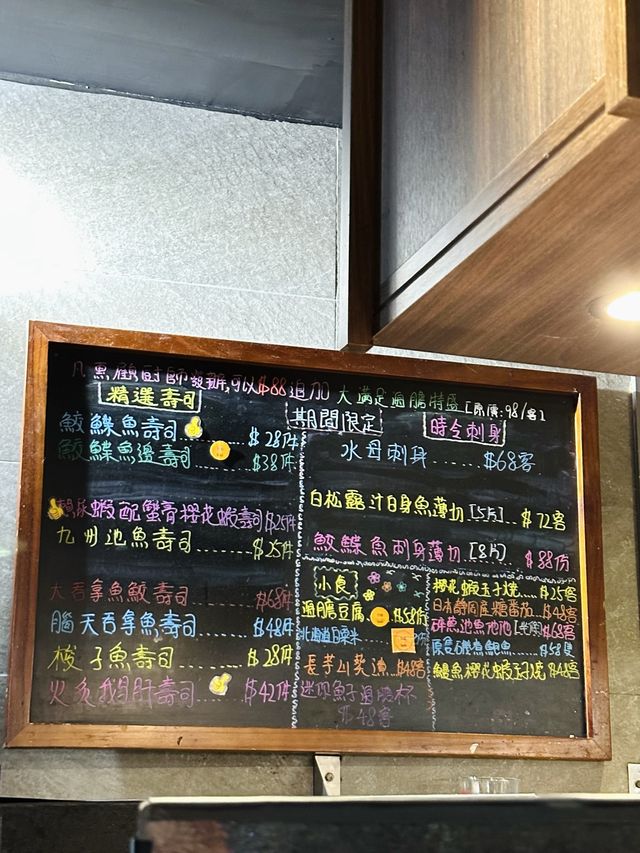 凡惠顧廚師發辦,可以$88追加 大滿足過膽特盛[原價:98/客]
精選壽司
鮫鰈魚壽司......$28件
鮫鰈魚邊壽司......$38件
蝦配蟹膏櫻花蝦壽司$25件
九州池魚壽司.......$25件
大吞拿魚鮫壽司......$68件
腦天吞拿魚壽司......$48件
梭子魚壽司......$28件
火炙鵝肝壽司....$42件
期間限定
時令刺身
水母刺身......$68客
白松露汁白身魚薄切[5片]..$72客
鮫鰈魚刺身薄切[8片] $88份
小食
過膽豆腐 $58份
北海道粟米
長芋山葵漬..$48客
迷你魚子過膽杯
$48客
櫻花蝦玉子燒....$25客
日本靜岡產糖番茄..$48客
$68客
$58隻
鰻魚櫻花蝦玉子燒 $48客